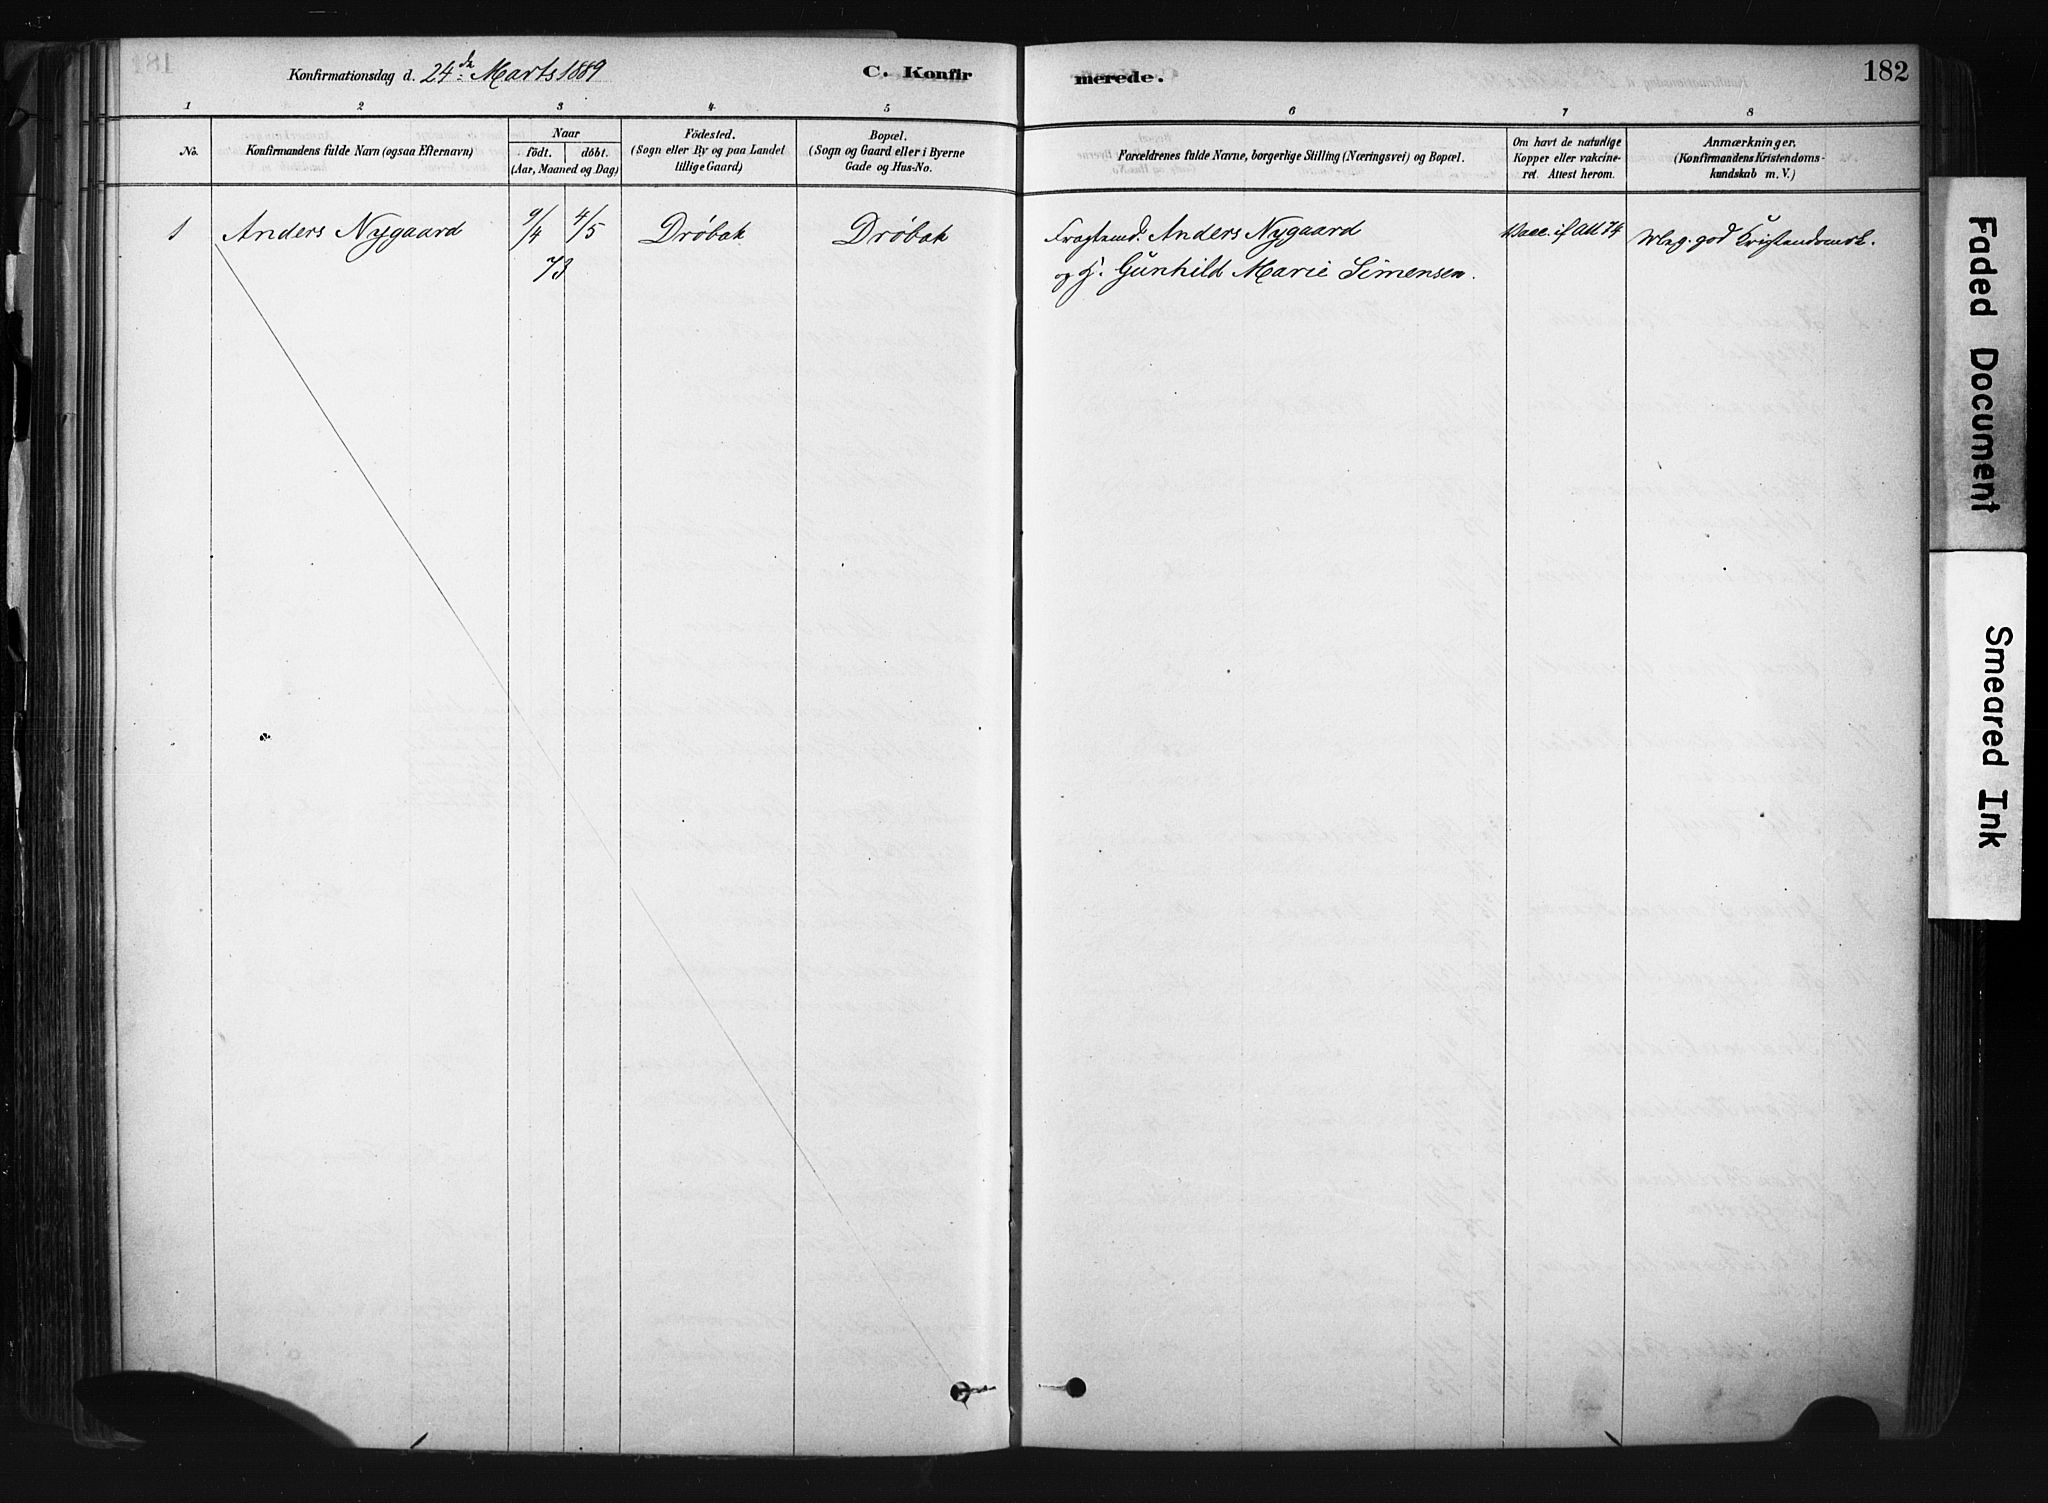 Konfirmationsdag d. 24de Marts 1889
C. Konfir
merede.
182
1 2 3 4 5 6 7 8
No.
Konfirmandens fulde Navn (ogsaa Efternavn)
Naar
födt. döbt.
(Aar, Maaned og Dag)
Födested.
(Sogn eller By og paa Landet
tillige Gaard)
Bopæl.
(Sogn og Gaard eller i Byerne
Gade og Hus-No.
Forældrenes fulde Navne, borgerlige Stilling (Næringsvei) og Bopæl.
Om havt de naturlige
Kopper eller vakcine-
ret. Attest herom.
Anmærkninger.
(Konfirmandens Kristendoms-
kundskab m. V.)
1 Anders Nygaard 9/4 4/5 Dröbak Dröbak Anders Nygaard Vacc. if Att 74 Meg. god Kristendomsk.
73 og H. Gunhild Marie Simensen.
Faded Document
Smeared Ink